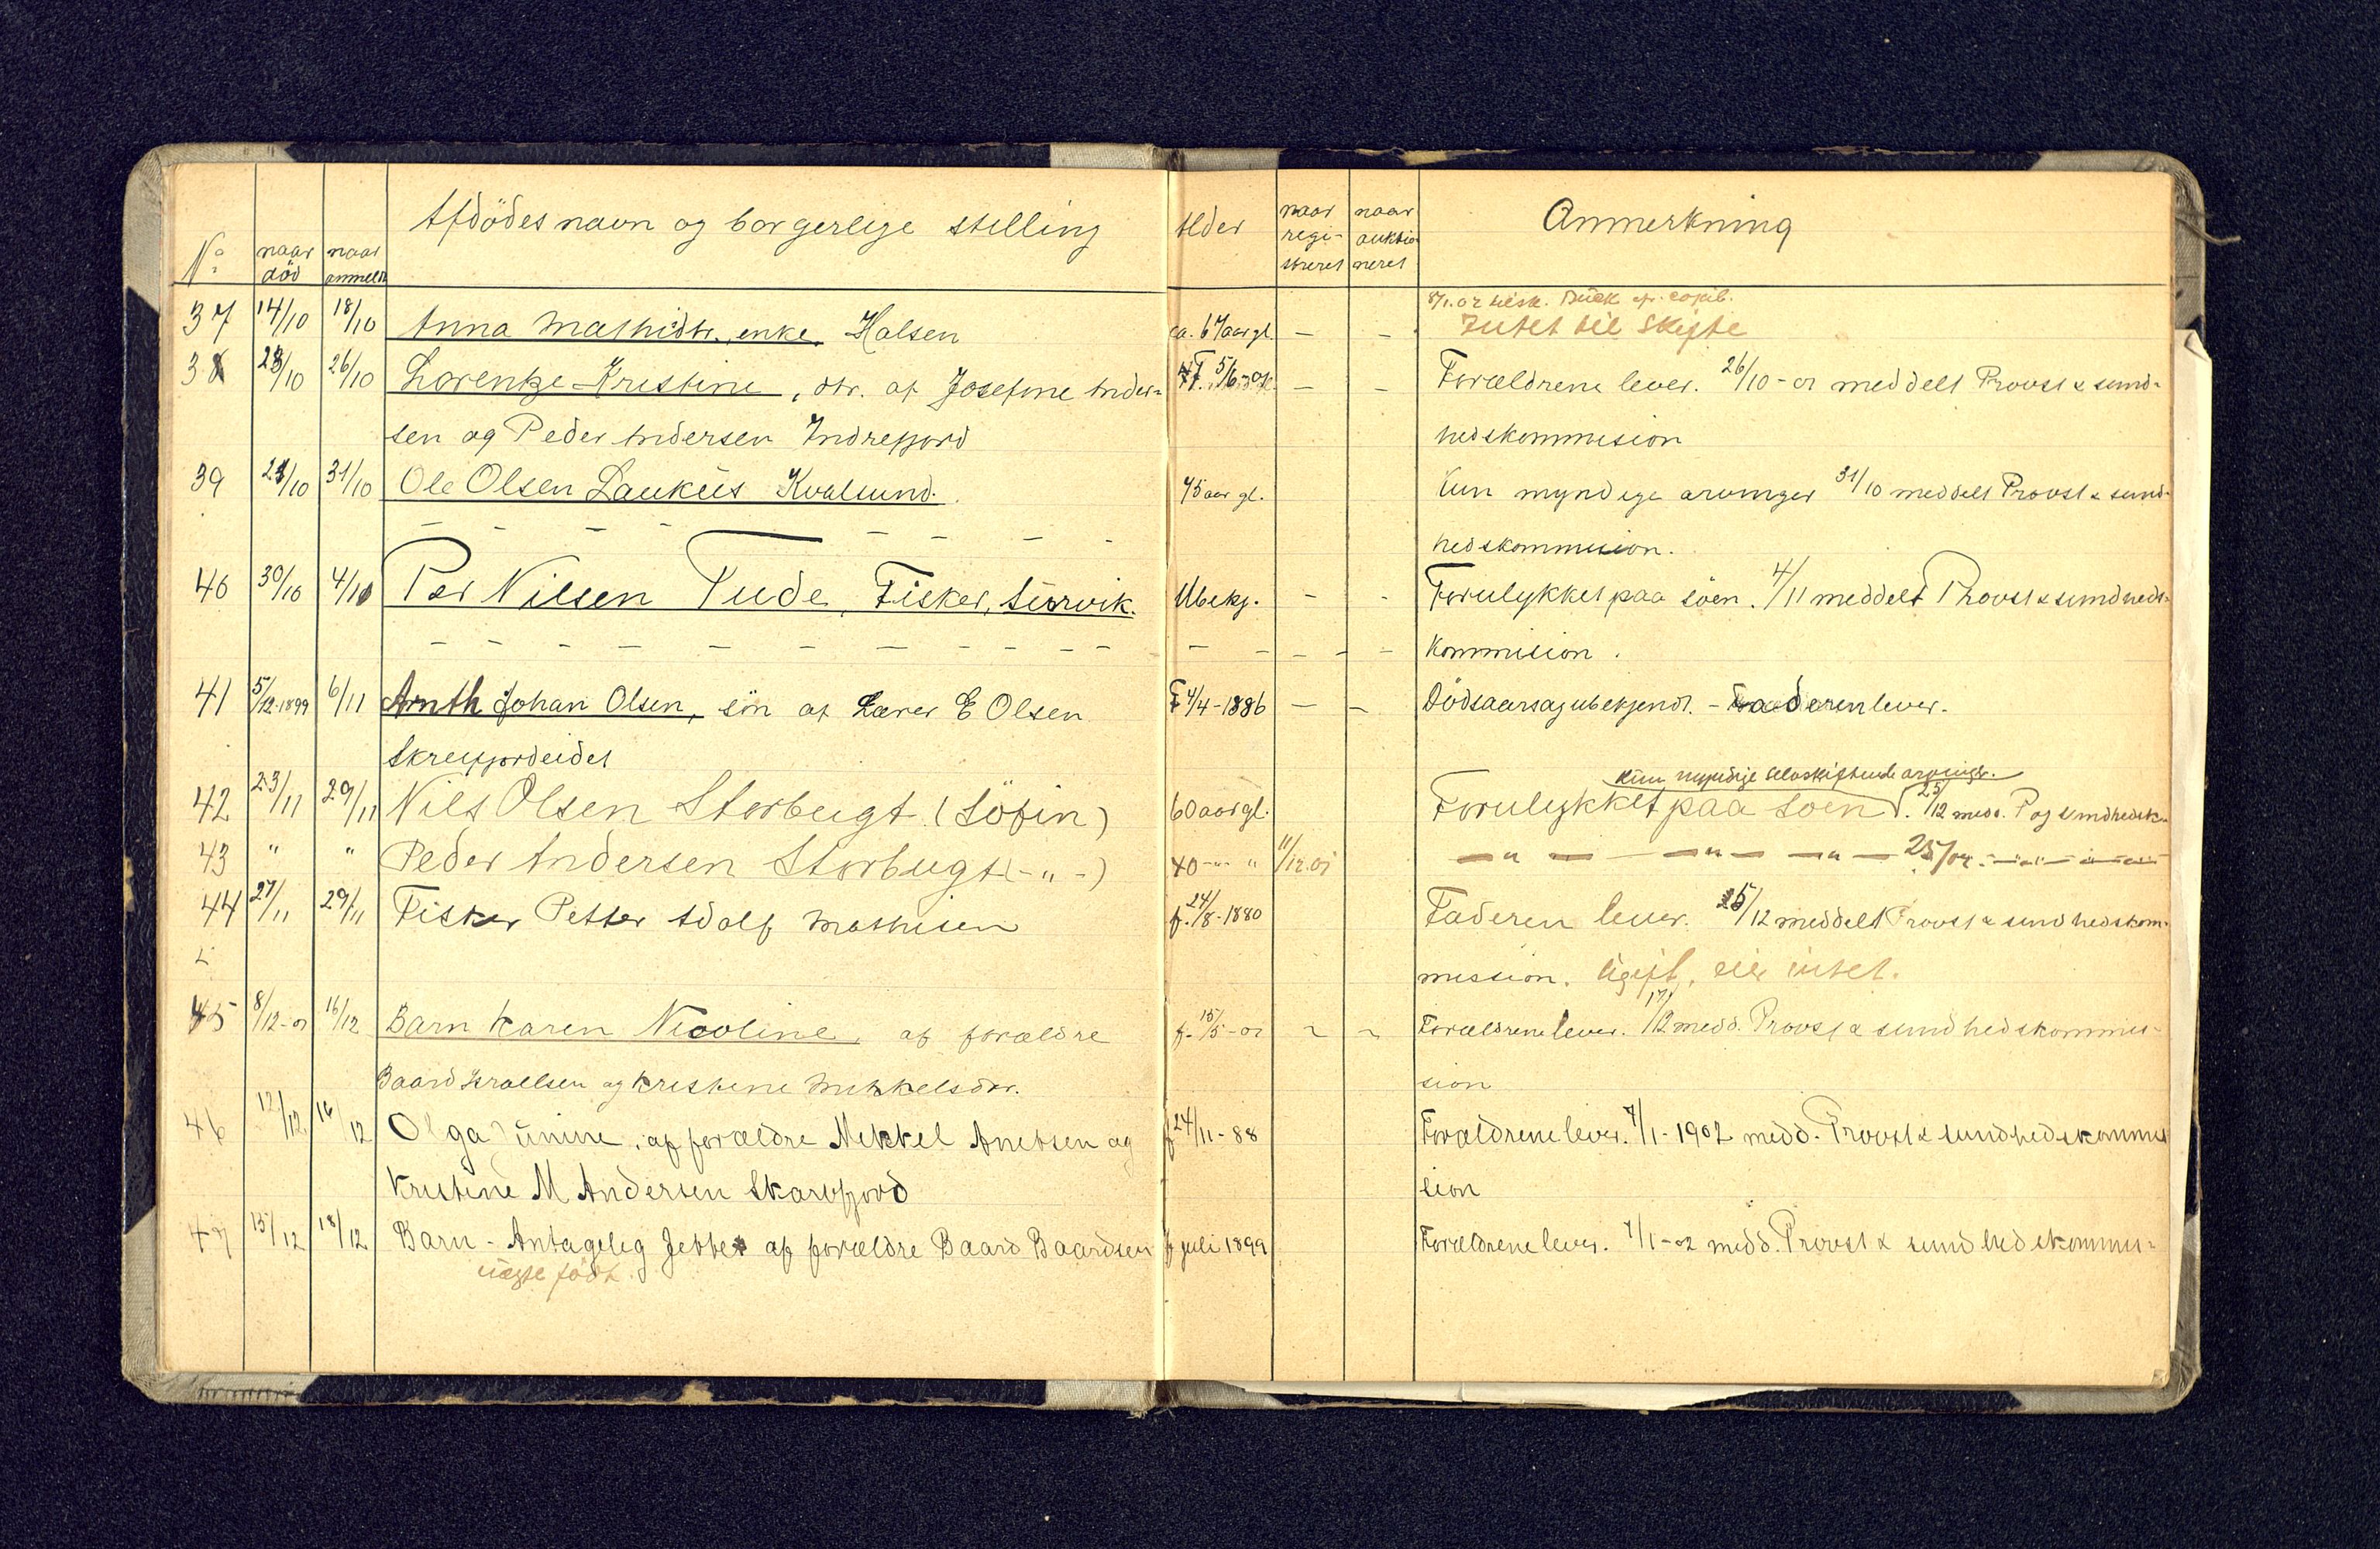 No naar död naar anmeldt Afdödes navn og borgerlige stilling Alder naar regi- streret naar auktio- neret Anmerkning
8/1.02 tilsk.
37 14/10 18/10 Anna Mathisdtr. enke. Halsen ca. 67 aar gl. — — Intet til Skifte
38 23/10 26/10 Lorentze Kristine, dtr. af Josefine Ander- — — Forældrene lever. 26/10-01 meddelt Provst & sund-
sen og Peder Andersen Indrefjord hedskommision
39 31/10 Ole Olsen Laukus Kvalsund. 75 aar gl. Kun myndige arvinger 31/10 meddelt Provst & sund-
hedskommision.
40 30/10 4/10 Per Nilsen Tude, Fisker, Ubekj. - - Forulykket paa söen. 4/11 meddelt Provst & sundheds-
Kommision.
41 5/12-1899 6/11 Arnth Johan Olsen, sön af Lærer E Olsen F 4/4-1886 — — Dödsaarsag ubekjendt. - Faderen lever.
Skreifjordeidet
kun myndige selvskiftende arvinger.
42 23/11 29/11 Nils Olsen Storbugt (Söfin) 60 aar gl. Forulykket paa soen. 25/12 medd. P og sundhedsk.
43 " " Peder Andersen Storbugt (-"-) 40 -"- " 11/12.01 — " — — " — — " — 25/
44 27/11 29/11 Fisker Petter Adolf Mathisen f. 24/8-1880 Faderen lever. 25/12 meddelt Provst & sundhedskom-
mission. Ugift, eier intet.
45 8/12-01 16/12 Barn Karen Nicoline, af forældre f. 15/5-01 ~ ~ Forældrene lever. 17/12 medd. Provst & sundhedskommis-
Baard Israelsen og Kristine Mikkelsdtr. sion
46 12/12 16/12 Olga Junine, af forældre Mekkel Anetsen og f 24/11-88 Forældrene lever. 7/1-1902 medd. Provst & sundhedskommis
Kristine M Andersen Skarvfjord sion
47 15/12 18/12 Barn - Antagelig af forældre Baard Baardsen f juli 1899 Forældrene lever. 7/1-02 medd. Provst & sundhedskommis-
uægte födt.